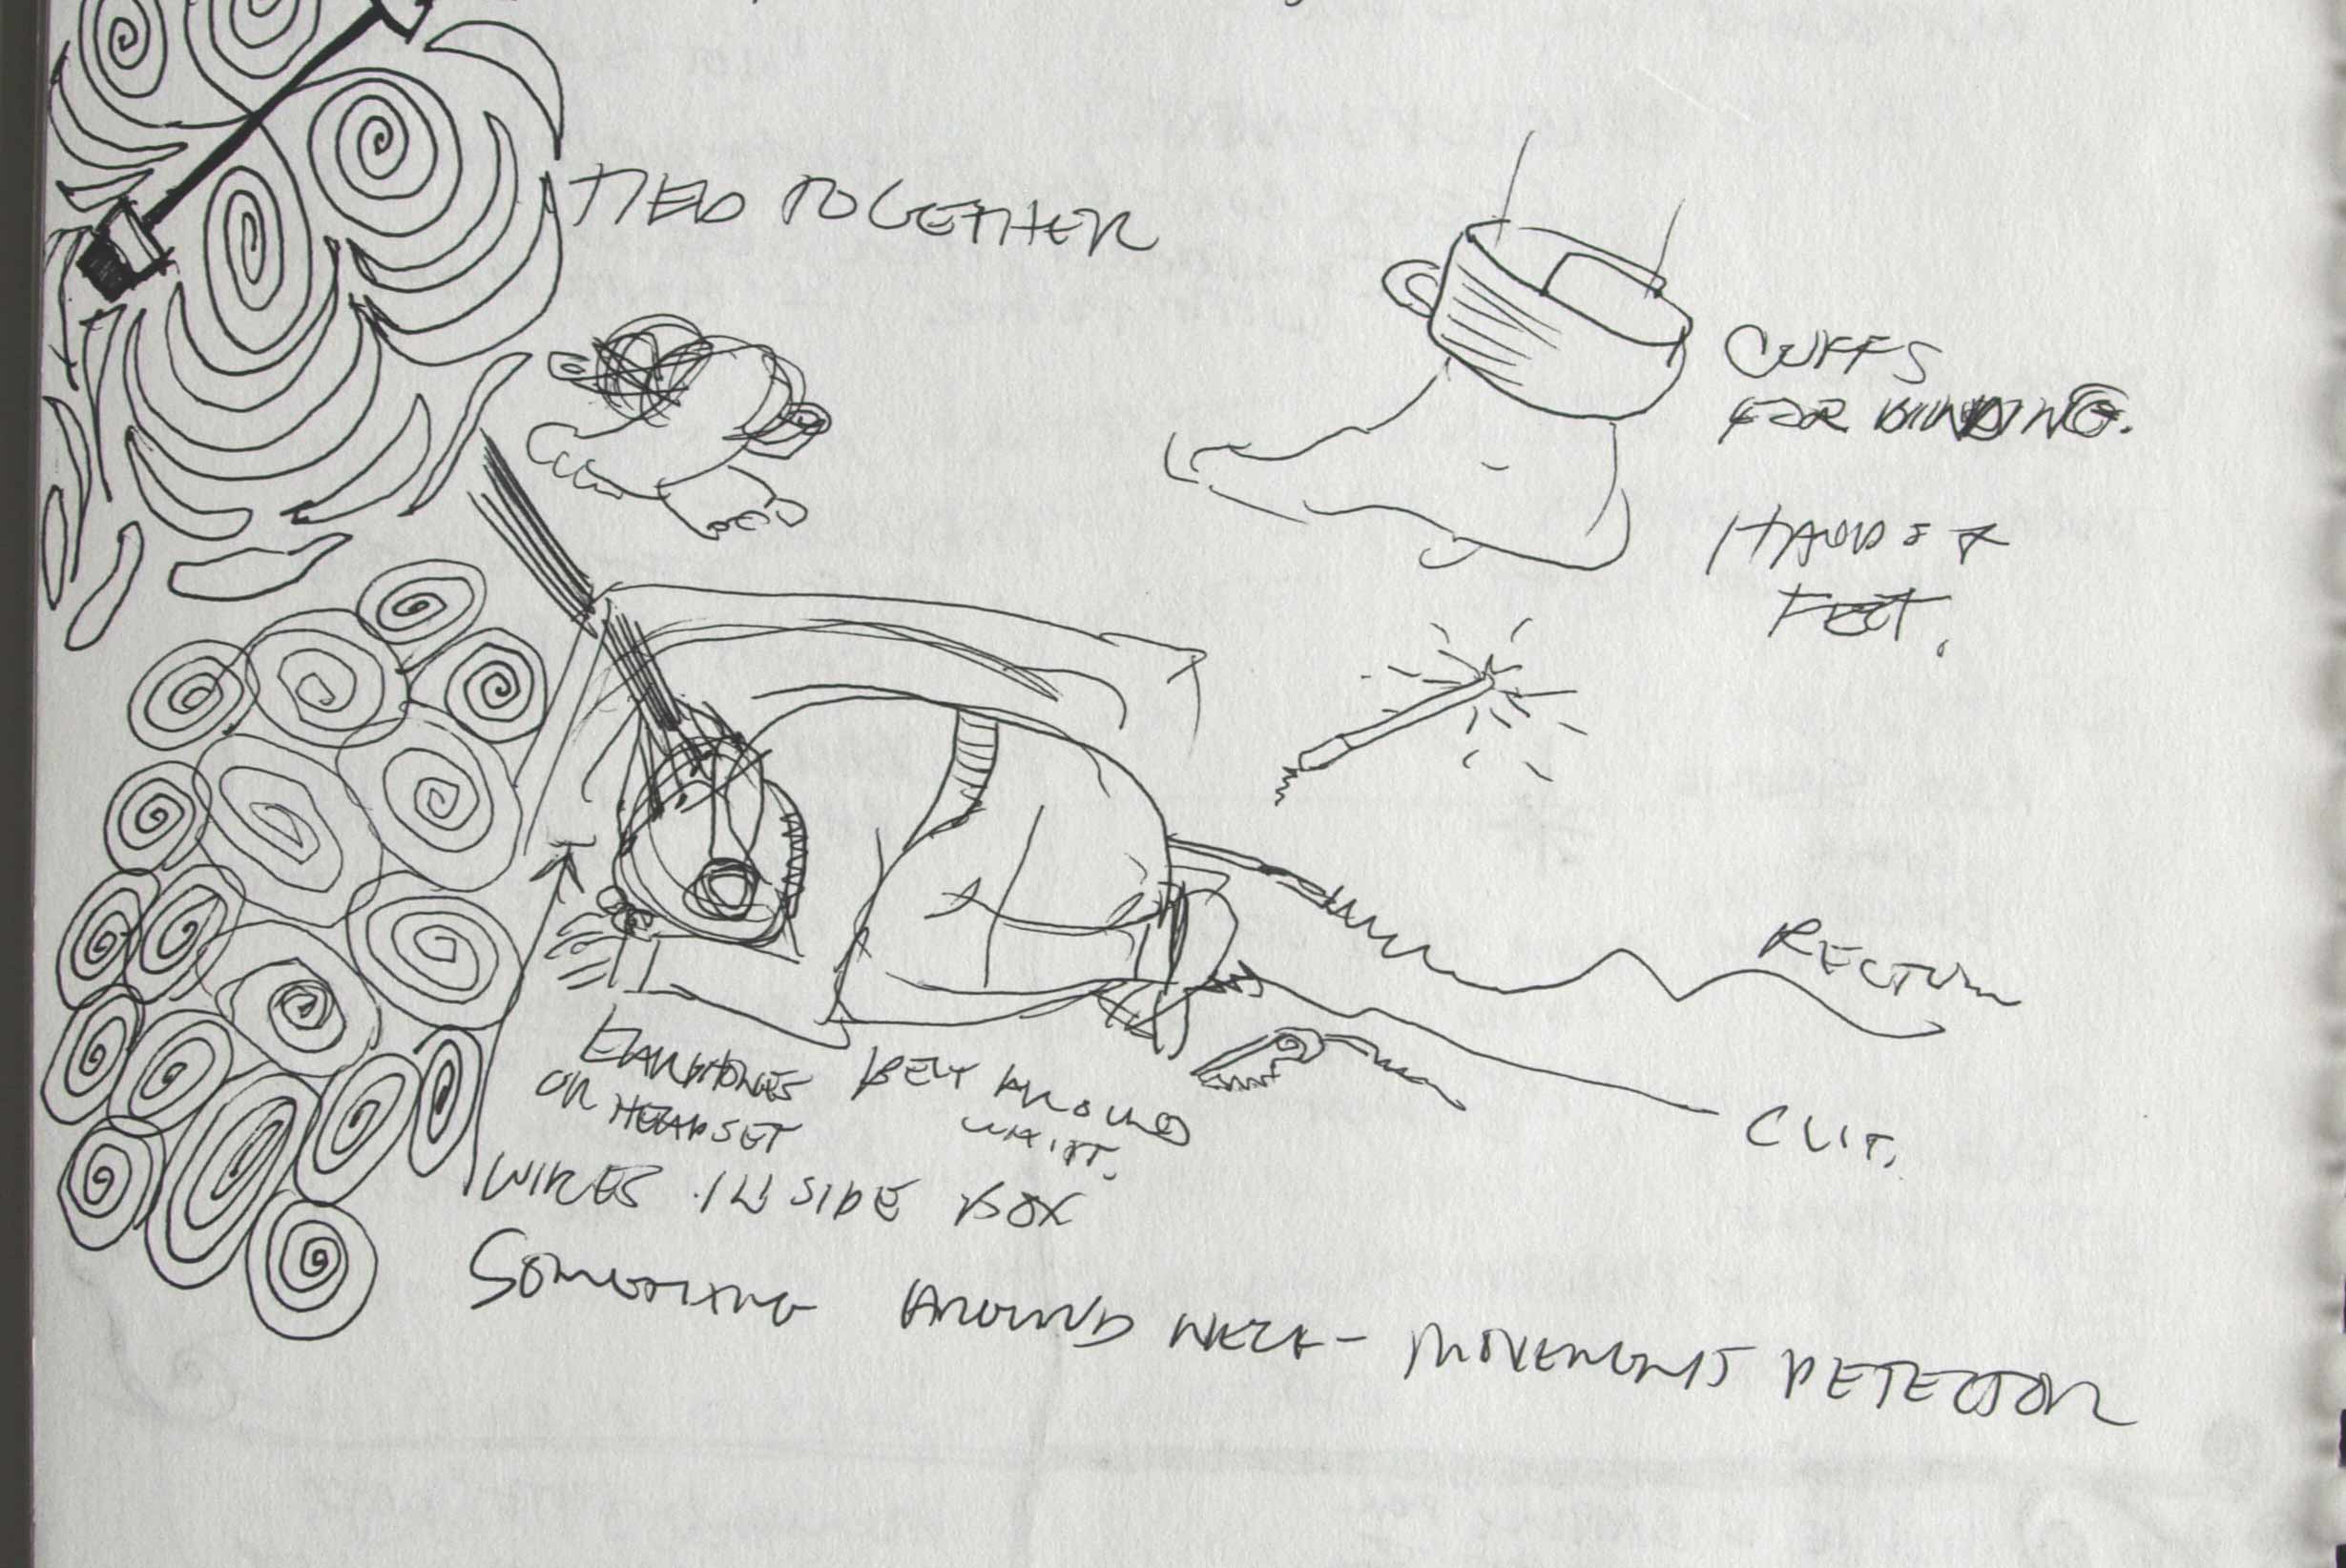 TIED TOGETHER
CUFFS
FOR BINDING.
HANDS &
FEET.
RECTUM
CLIT.
EARPHONES
OR HEADSET
BELT AROUND
WAIST.
WIRES INSIDE BOX
SOMETHING AROUND NECK - MOVEMENT DETECTOR